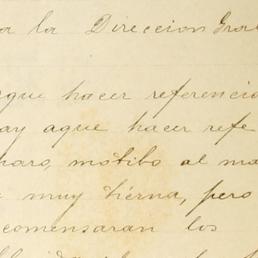 a la Direccion Gral
que hacer referencia
hay aque hacer refe
faro, motibo al ma
muy tierna, pero
comensaran los